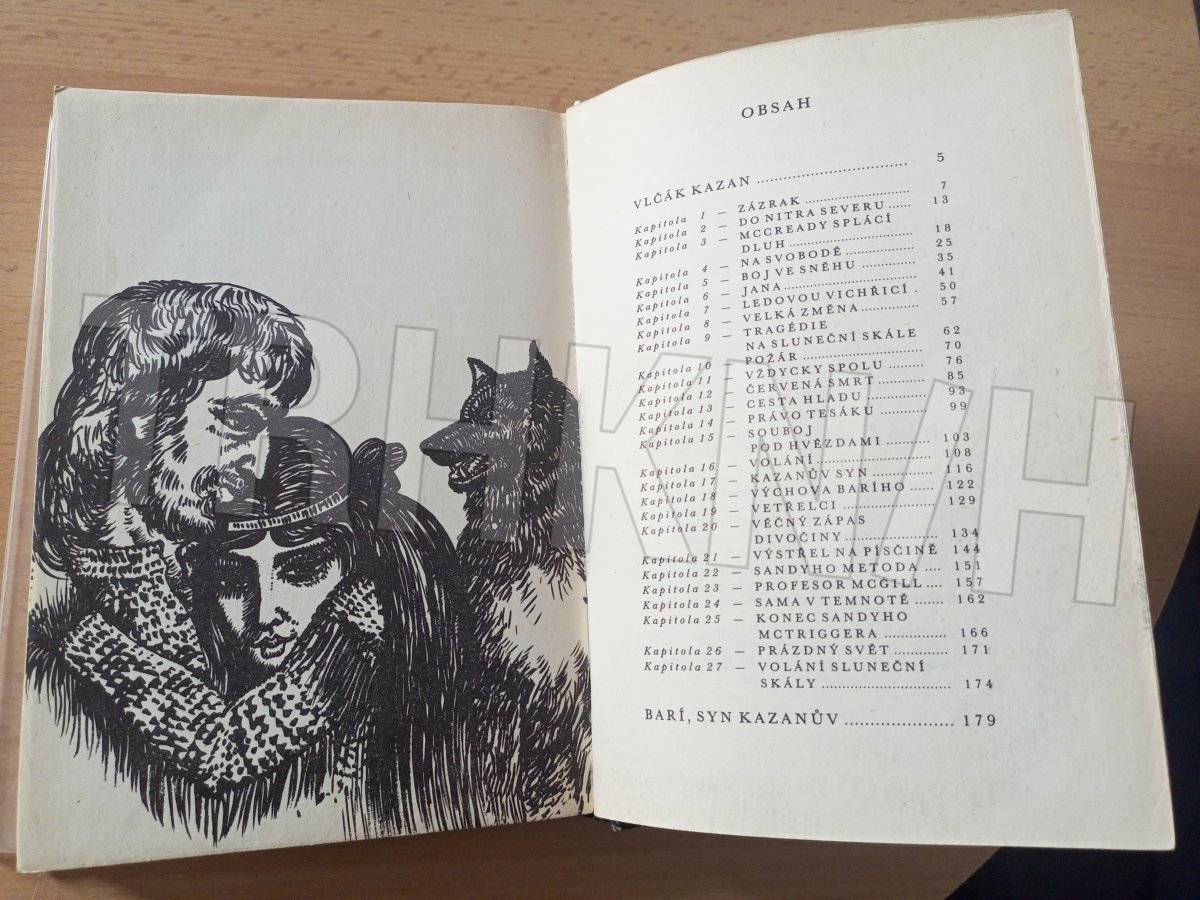 OBSAH
VLČÁK KAZAN .................................. 5
Kapitola 1 — ZÁZRAK ........................ 7
Kapitola 2 — DO NITRA SEVERU ...... 13
Kapitola 3 — MCCREADY SPLÁCÍ
DLUH ............................ 18
Kapitola 4 — NA SVOBODĚ ................ 25
Kapitola 5 — BOJ VE SNĚHU ............. 35
Kapitola 6 — JANA .............................. 41
Kapitola 7 — LEDOVOU VICHŘICÍ . 50
Kapitola 8 — VELKÁ ZMĚNA ............. 57
Kapitola 9 — TRAGÉDIE
NA SLUNEČNÍ SKÁLE 62
Kapitola 10 — POŽÁR ........................... 70
Kapitola 11 — VŽDYCKY SPOLU ........ 76
Kapitola 12 — ČERVENÁ SMRT .......... 85
Kapitola 13 — CESTA HLADU ............. 93
Kapitola 14 — PRÁVO TESÁKU .......... 99
Kapitola 15 — SOUBOJ
POD HVĚZDAMI .......... 103
Kapitola 16 — VOLÁNÍ ........................ 108
Kapitola 17 — KAZANŮV SYN ............ 116
Kapitola 18 — VÝCHOVA BARÍHO ...... 122
Kapitola 19 — VETŘELCI ..................... 129
Kapitola 20 — VĚČNÝ ZÁPAS
DIVOČINY ..................... 134
Kapitola 21 — VÝSTŘEL NA PÍSČINĚ 144
Kapitola 22 — SANDYHO METODA .... 151
Kapitola 23 — PROFESOR MCGILL .... 157
Kapitola 24 — SAMA V TEMNOTĚ ....... 162
Kapitola 25 — KONEC SANDYHO
MCTRIGGERA ............... 166
Kapitola 26 — PRÁZDNÝ SVĚT ............. 171
Kapitola 27 — VOLÁNÍ SLUNEČNÍ
SKÁLY ............................... 174
BARÍ, SYN KAZANŮV ..................... 179
TRHKNIH